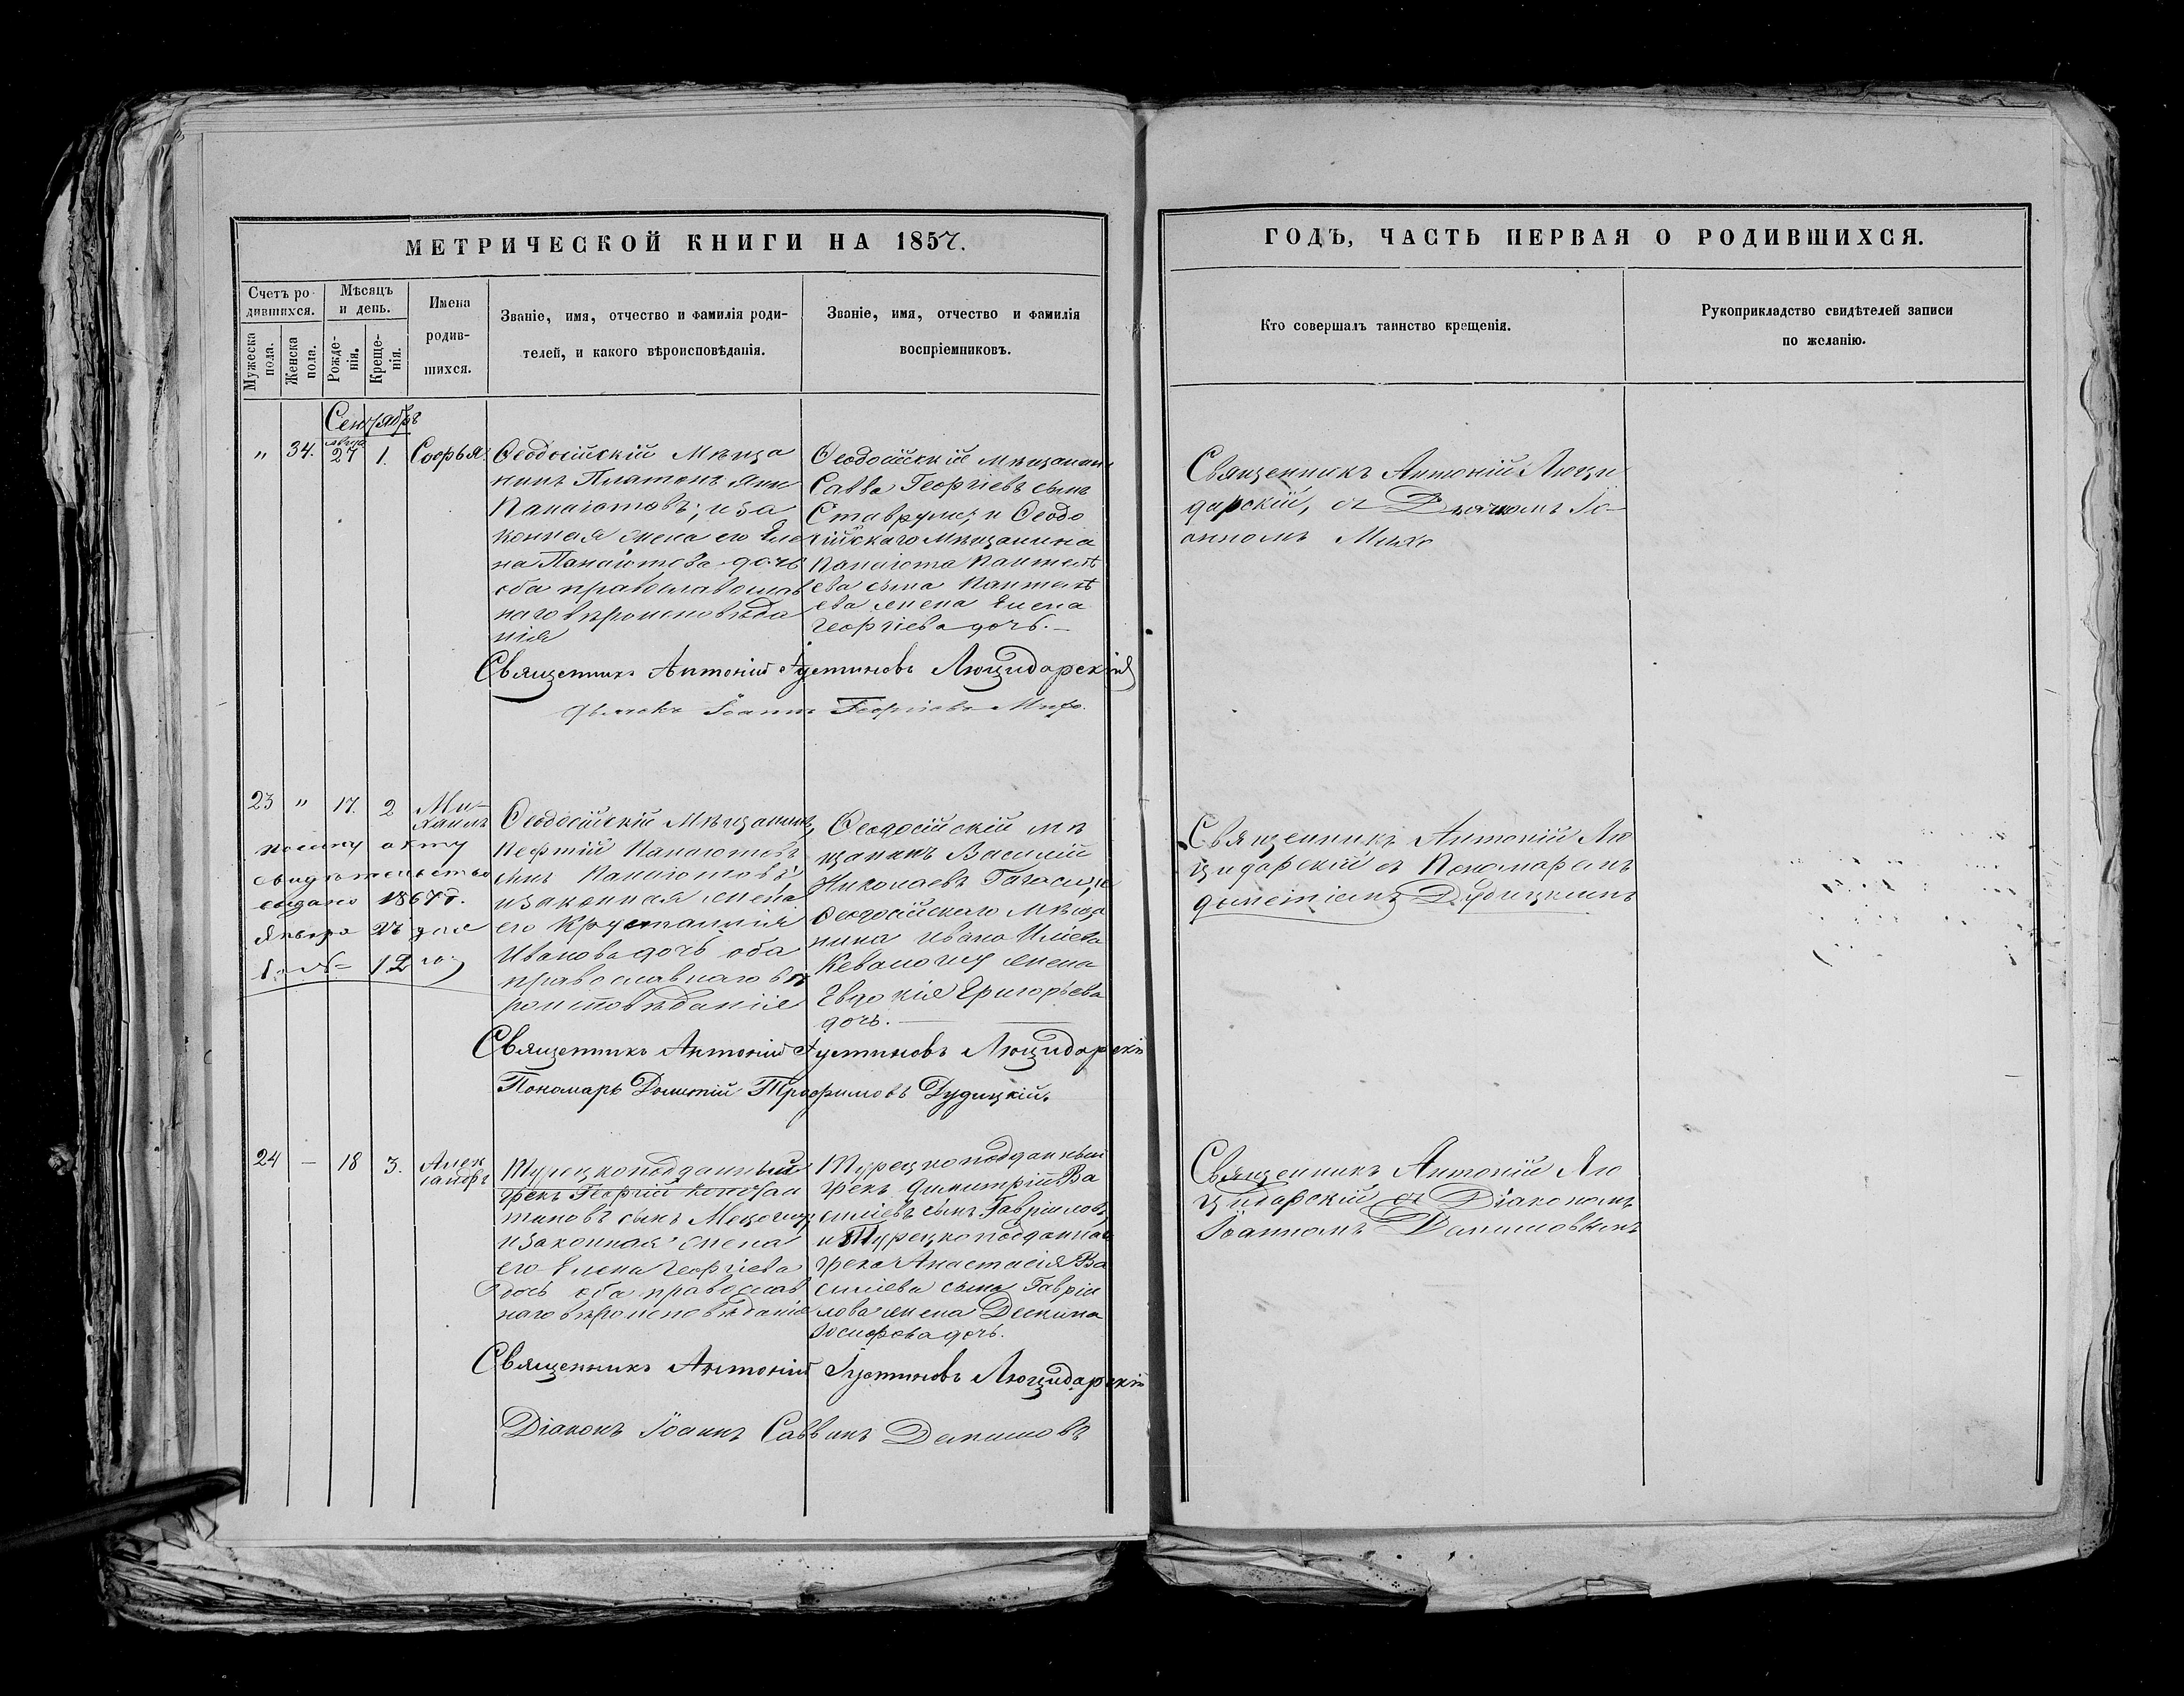 МЕТРИЧЕСКОЙ КНИГИ НА 1857.
Счетъ ро-
дившихся.
Мужеска пола.
Женска пола.
Мѣсяцъ
и день.
Рожде-
нія.
Креще-
нія.
Имена
родив-
шихся.
Званіе, имя, отчество и фамилія роди-
телей, и какого вѣроисповѣданія.
Званіе, имя, отчество и фамилія
воспріемниковъ.
Сентябрь
" 34. 27 1. Софья.
Ѳеодосійскій Мѣща
нинъ Платонъ
Панаіотовъ; и за
конная жена его Еле
на Панаіотова дочь
оба православ
наго вѣроисповѣда
нія
Ѳеодосійскій мѣщанин
Савва Георгіевъ сынъ
и Ѳеодо
сійскаго Мѣщанина
Панаіота Пантелѣ
ева сына Пантелѣ
ева жена Елена
Георгіева дочь.
Священникъ Антоній Іустиновъ Люцидарскій
Дьячокъ Іоаннъ Георгіевъ
23 " 17. 2 Ми-
хаилъ
по сему акту
свидѣтельство
выдано 1867 г.
Января
№ 12
Ѳеодосійскій Мѣщанинъ
Панаіотовъ
сынъ Панаіотовъ
и законная жена
его Крусталлія
Иванова дочь оба
православнаго вѣ
роисповѣданія
Ѳеодосійскій мѣ
щанинъ Василій
Николаевъ
Ѳеодосійскаго Мѣща
нина Ивана Иліева
жена
Евдокія Григорьева
дочь.
Священникъ Антоній Іустиновъ Люцидарскій
Пономарь Дометій Трофимовъ Дудицкій.
24 — 18 3. Алек
сандръ
Турецкоподданный
грекъ Георгій Конста
тиновъ сынъ
и законная жена
его Елена Георгіева
дочь оба православ
наго вѣроисповѣданія
Турецкоподданный
грекъ Димитрій Ва
силіевъ сынъ Гавріиловъ
и Турецкоподданнаго
грека Анастасія Ва
силіева сына Гавріи
лова жена Деспина
Іосифова дочь.
Священникъ Антоній Іустиновъ Люцидарскій
Діаконъ Іоаннъ Саввинъ Данииловъ
ГОДЪ, ЧАСТЬ ПЕРВАЯ О РОДИВШИХСЯ.
Кто совершалъ таинство крещенія.
Рукоприкладство свидѣтелей записи
по желанію.
Священникъ Антоній Люци
дарскій, съ Дьячкомъ Іо
анномъ
Священникъ Антоній Лю
цидарскій съ Пономаремъ
Дометіемъ Дудицкимъ
Священникъ Антоній Лю
цидарскій съ Діакономъ
Іоанномъ Данииловымъ